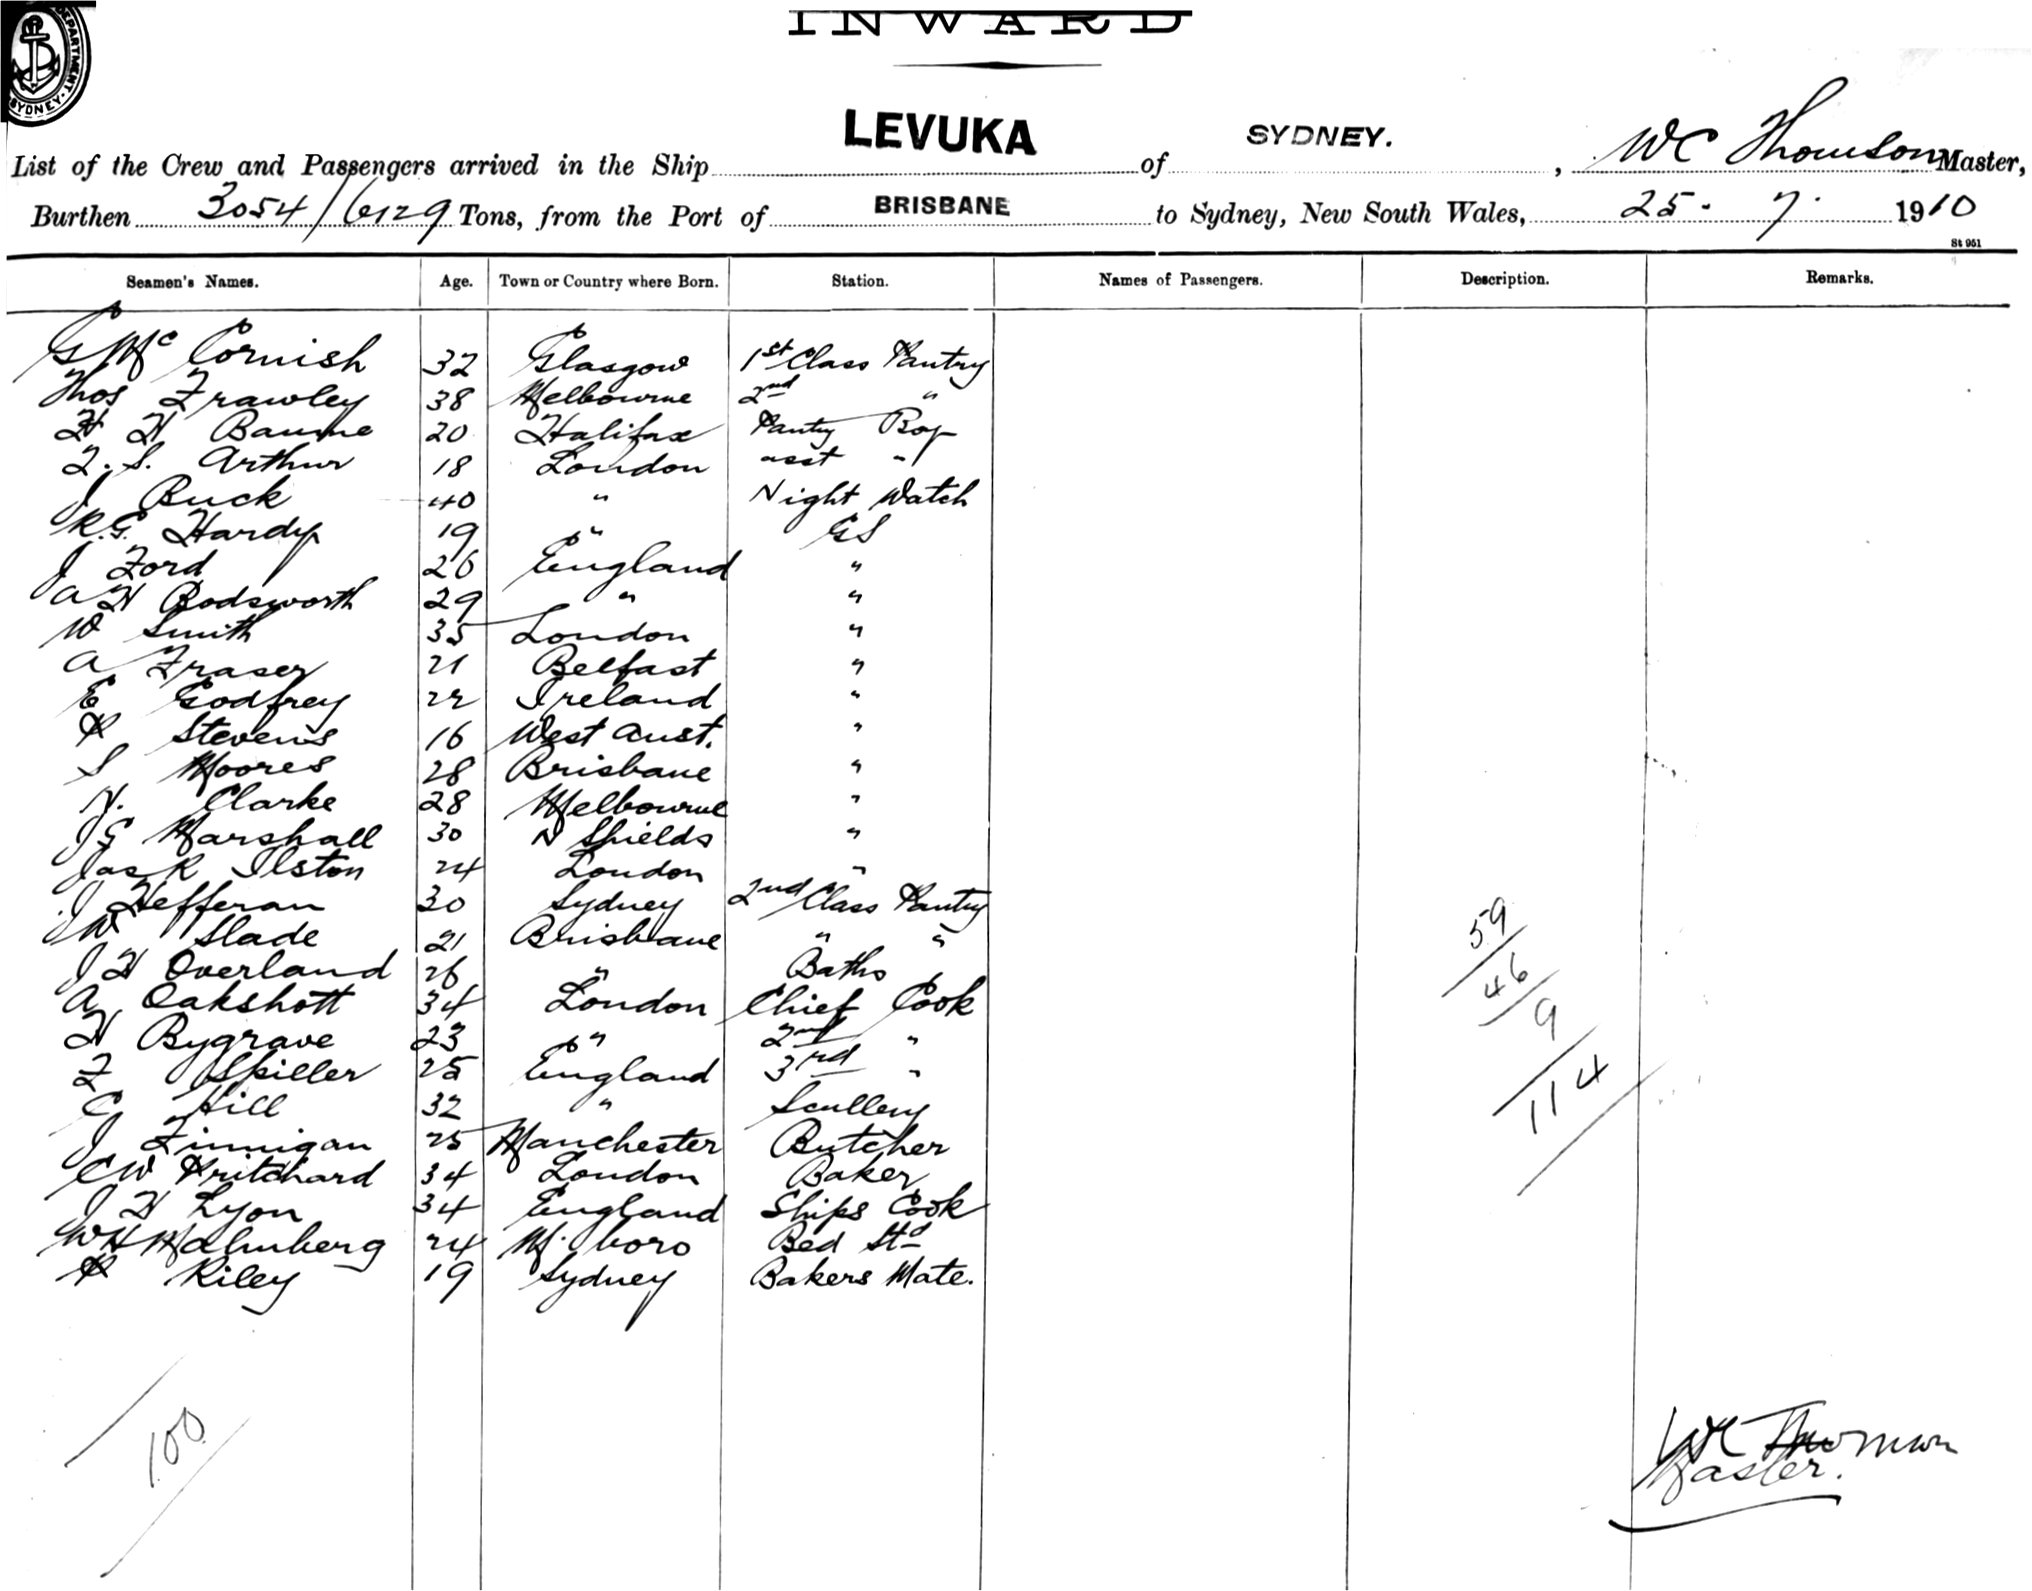 DEPARTMENT
SYDNEY
INWARD
List of the Crew and Passengers arrived in the Ship LEVUKA of SYDNEY. , WC Thomson Master,
Burthen 3054/6129 Tons, from the Port of BRISBANE to Sydney, New South Wales, 25. 7. 1910
St 951
Seamen's Names. Age. Town or Country where Born. Station. Names of Passengers. Description. Remarks.
G Mc Cornish 32 Glasgow 1st Class Pantry
Thos Frawley 38 Melbourne 2nd "
H H Baume 20 Halifax Pantry Boy
F. S. Arthur 18 London asst "
J Buck 40 " Night Watch
R.G. Hardy 19 " GS
J Ford 26 England "
A H Bodsworth 29 " "
W Smith 35 London "
A Fraser 21 Belfast "
E Godfrey 22 Ireland "
P Stevens 16 West Aust. "
S Moores 28 Brisbane "
N. Clarke 28 Melbourne "
J G Marshall 30 N Shields "
Jack Ilston 24 London "
J Hefferan 30 Sydney 2nd Class Pantry
W Slade 21 Brisbane " "
J H Overland 26 " Baths
A Oakshott 34 London Chief Cook
H Bygrave 23 " 2nd "
F Spiller 25 England 3rd "
C Hill 32 " Scullery
J Finnigan 25 Manchester Butcher
C W Pritchard 34 London Baker
J H Lyon 34 England Ships Cook
W H Malmberg 24 M. boro Bed Std
P Riley 19 Sydney Bakers Mate.
59
46
9
114
100
WC Thomson
Master.